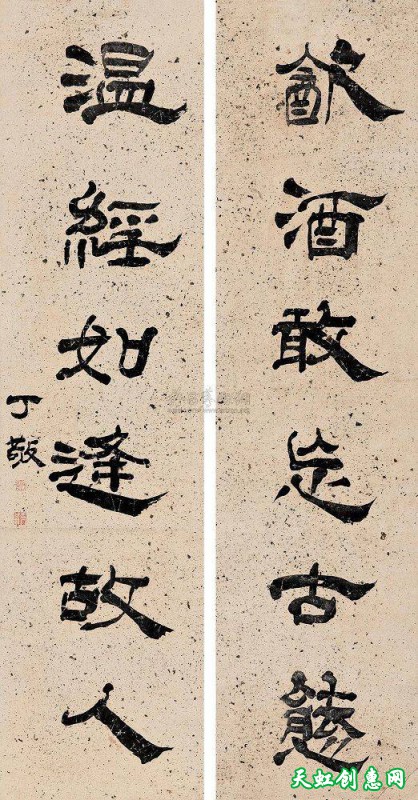 飲酒敢忘古態
温經如逢故人
丁敬
天虹创惠网